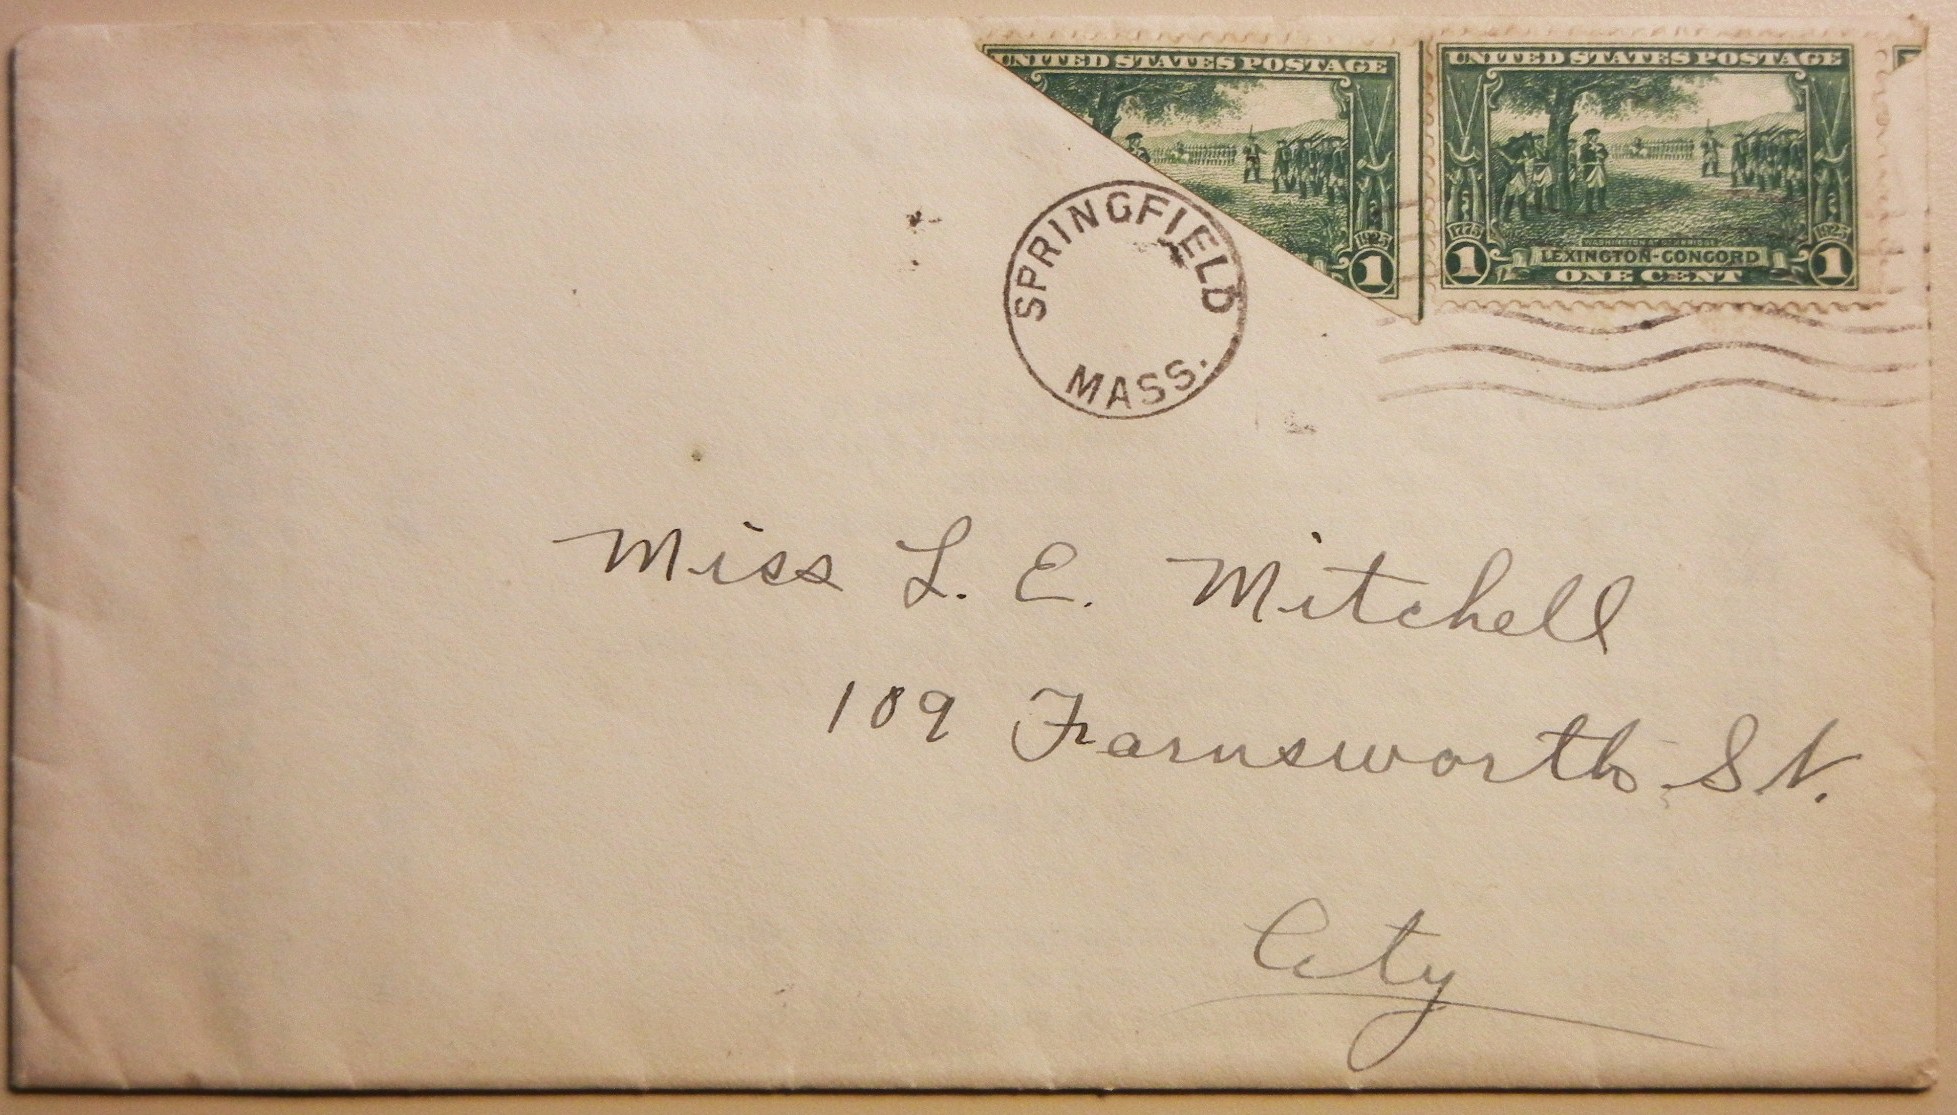 UNITED STATES POSTAGE
1925
1
UNITED STATES POSTAGE
1775
1925
WASHINGTON AT CAMBRIDGE
1 LEXINGTON-CONCORD 1
ONE CENT
SPRINGFIELD
MASS.
Miss L. E. Mitchell
109 Farnsworth St.
City